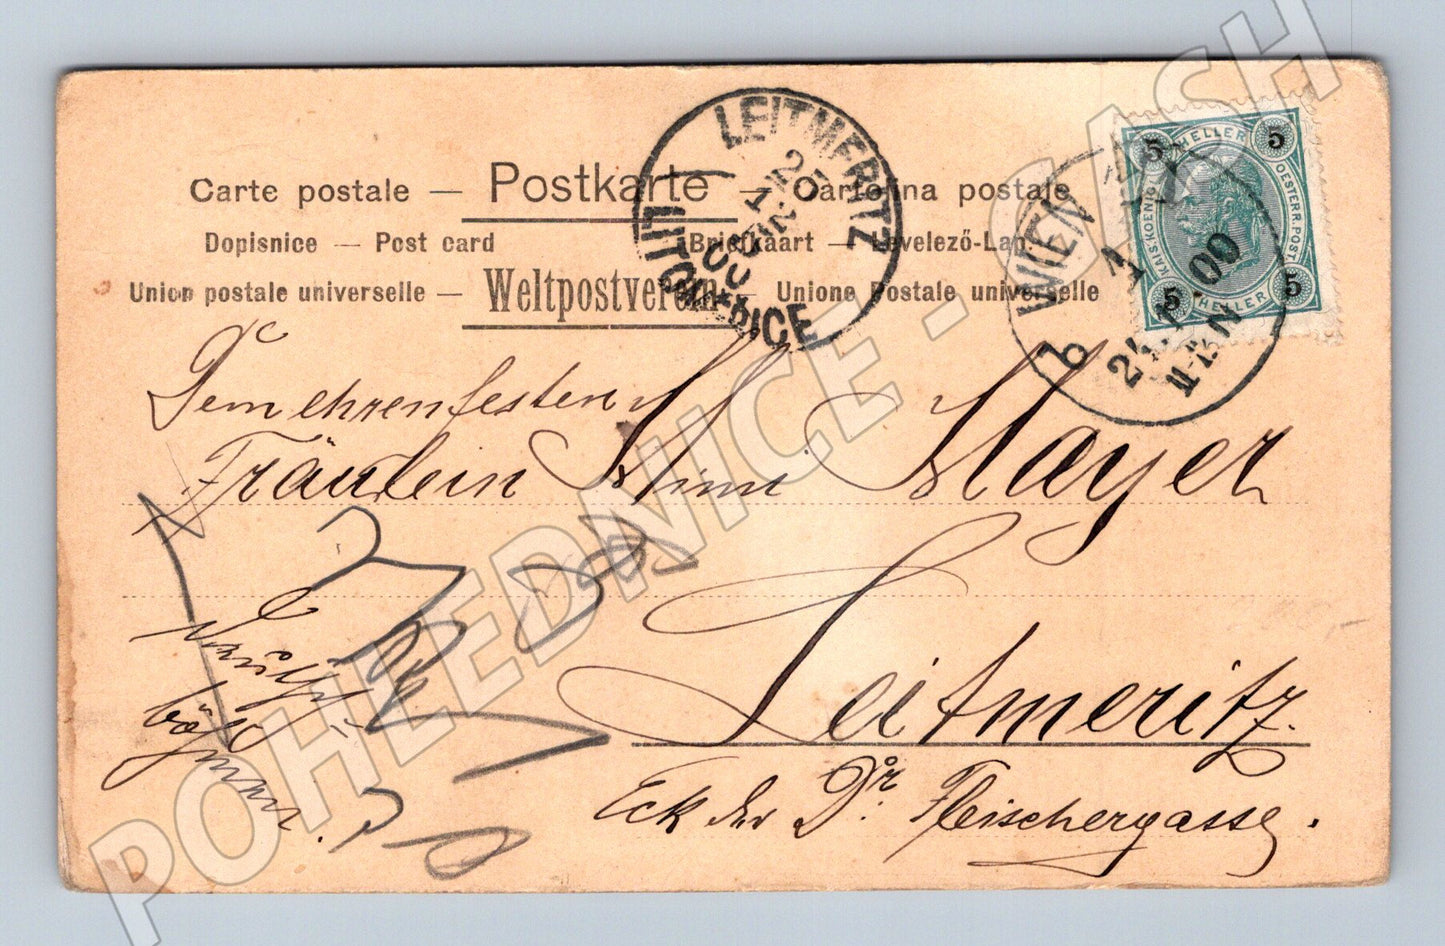 Carte postale — Postkarte — Cartolina postale
Dopisnice — Post card Briefkaart — Levelező-Lap.
Union postale universelle — Weltpostverein — Unione Postale universelle
LEITMERITZ
LITOMĚŘICE
WIEN
5 HELLER 5
KAIS. KOENIGL. OESTERR. POST
5 HELLER 5
Dem ehrenfesten
Fräulein Mimi Mayer
Leitmeritz.
Eck der Dr. Fleischergasse.
POHLEDNICE - CASH